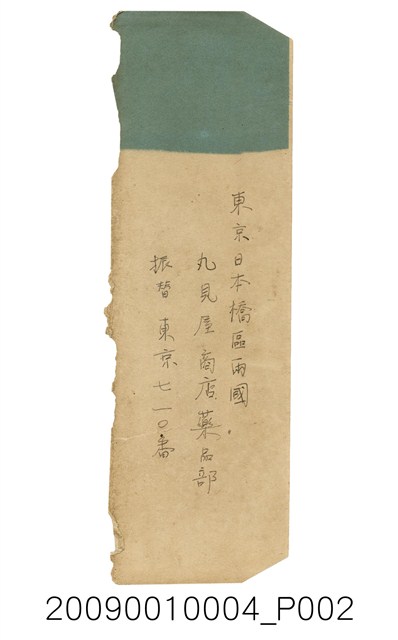 東京日本橋區両國
丸見屋商店薬品部
振替 東京七一〇番
20090010004_P002